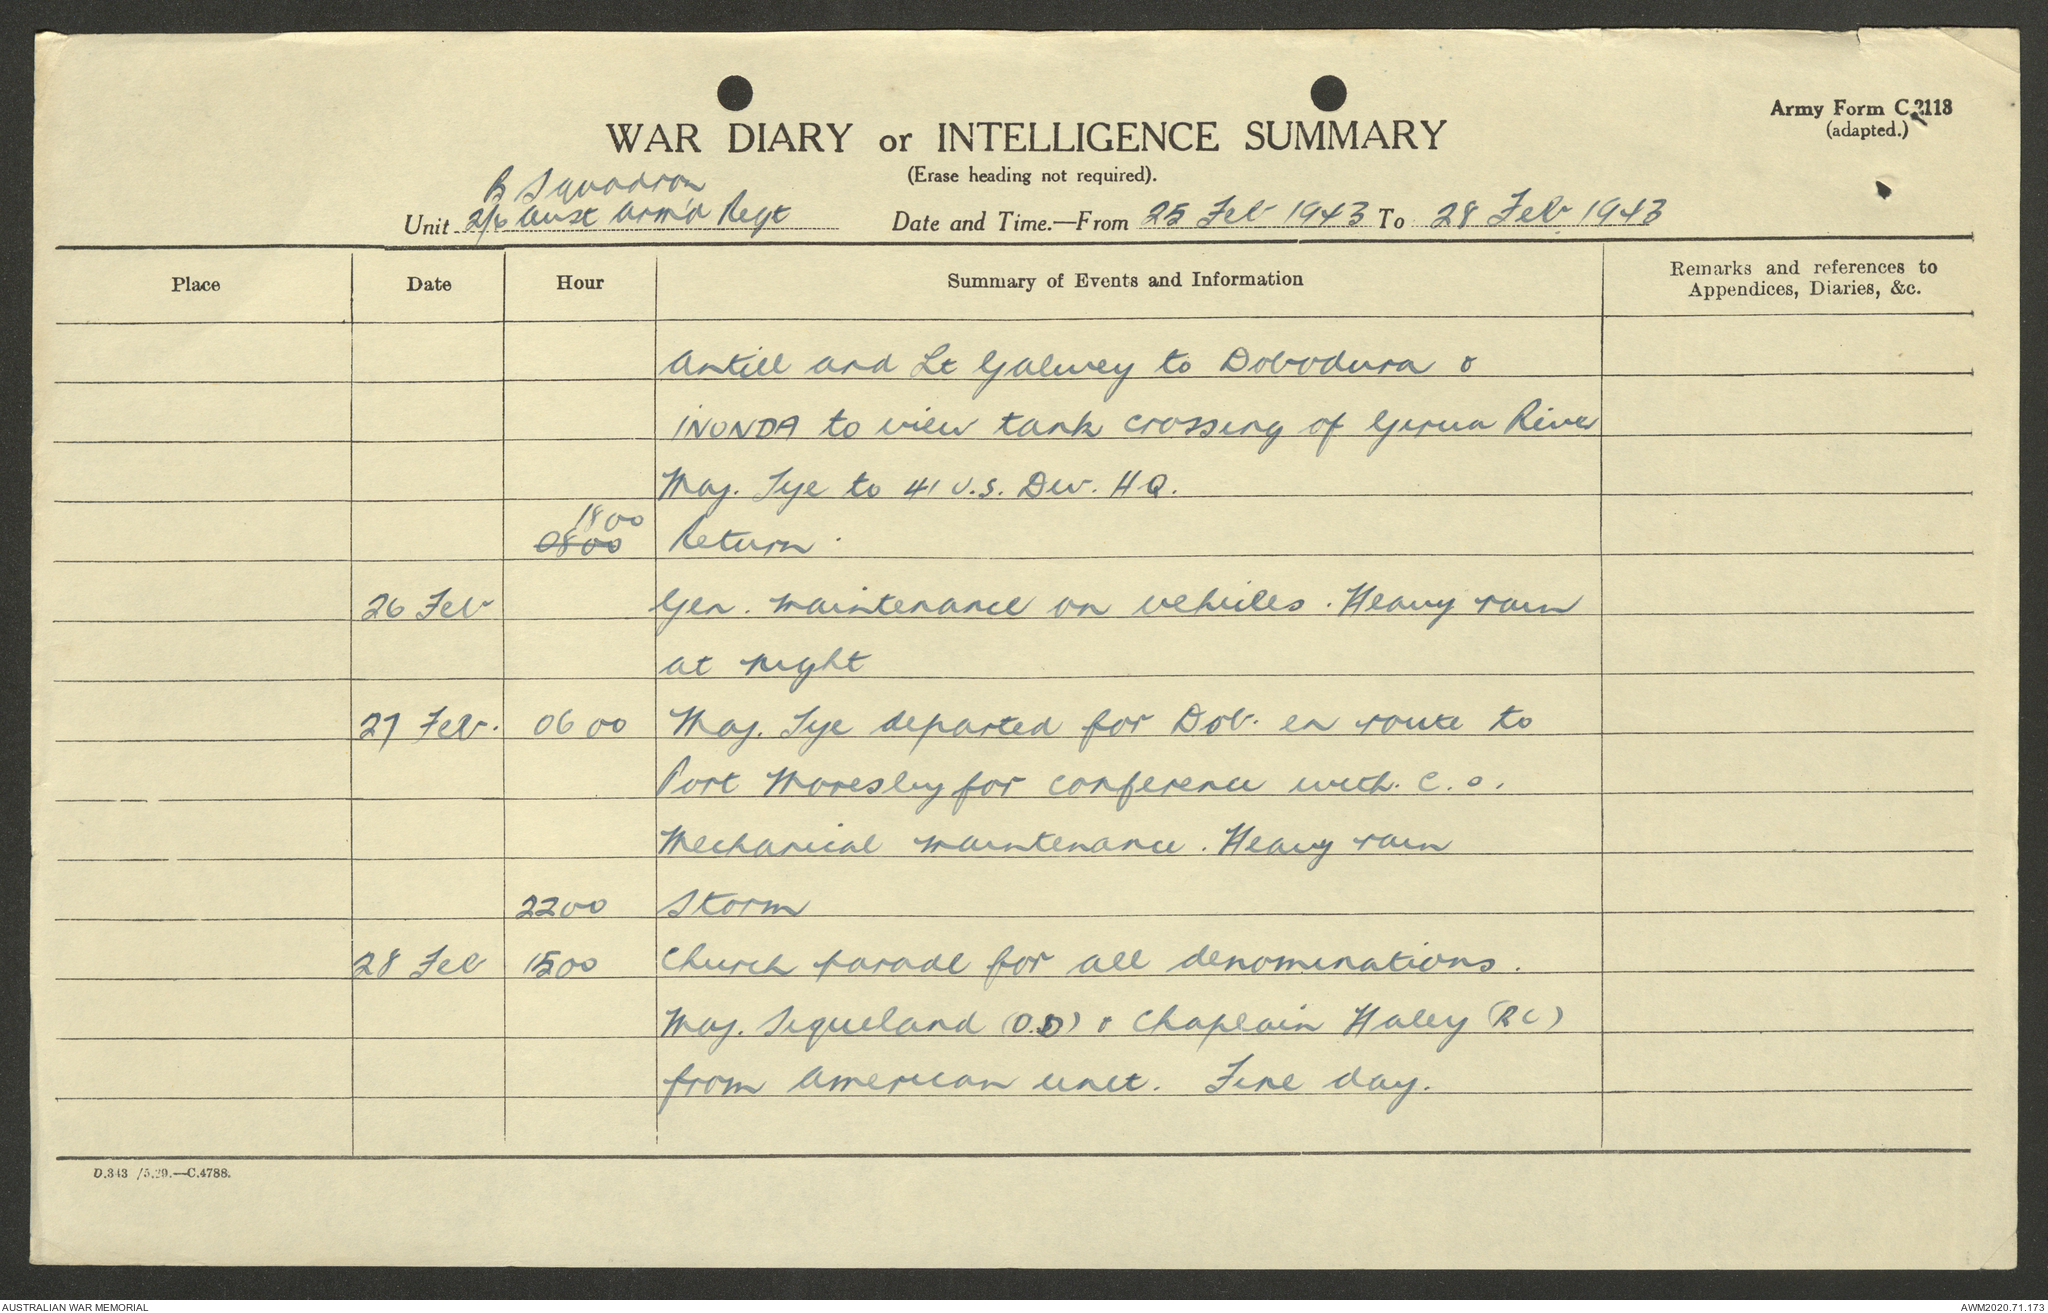 Army Form C.2118
(adapted.)
WAR DIARY or INTELLIGENCE SUMMARY
(Erase heading not required).
B Squadron
Unit 2/6 Aust Arm'd Regt Date and Time.—From 25 Feb 1943 To 28 Feb 1943
Place Date Hour Summary of Events and Information Remarks and references to
Appendices, Diaries, &c.
Antill and Lt Galwey to Dobodura &
INONDA to view tank crossing of Girua River
Maj. Tye to 41 U.S. Div. H.Q.
1800
0800 Return.
26 Feb Gen. maintenance on vehicles. Heavy rain
at night
27 Feb. 0600 Maj. Tye departed for Dob. en route to
Port Moresby for conference with C.O.
Mechanical maintenance. Heavy rain
2200 Storm
28 Feb 1500 Church parade for all denominations.
Maj. Siqueland (O.D) & Chaplain Haley (RC)
from American unit. Fine day.
D.343 /5.29.—C.4788.
AUSTRALIAN WAR MEMORIAL AWM2020.71.173